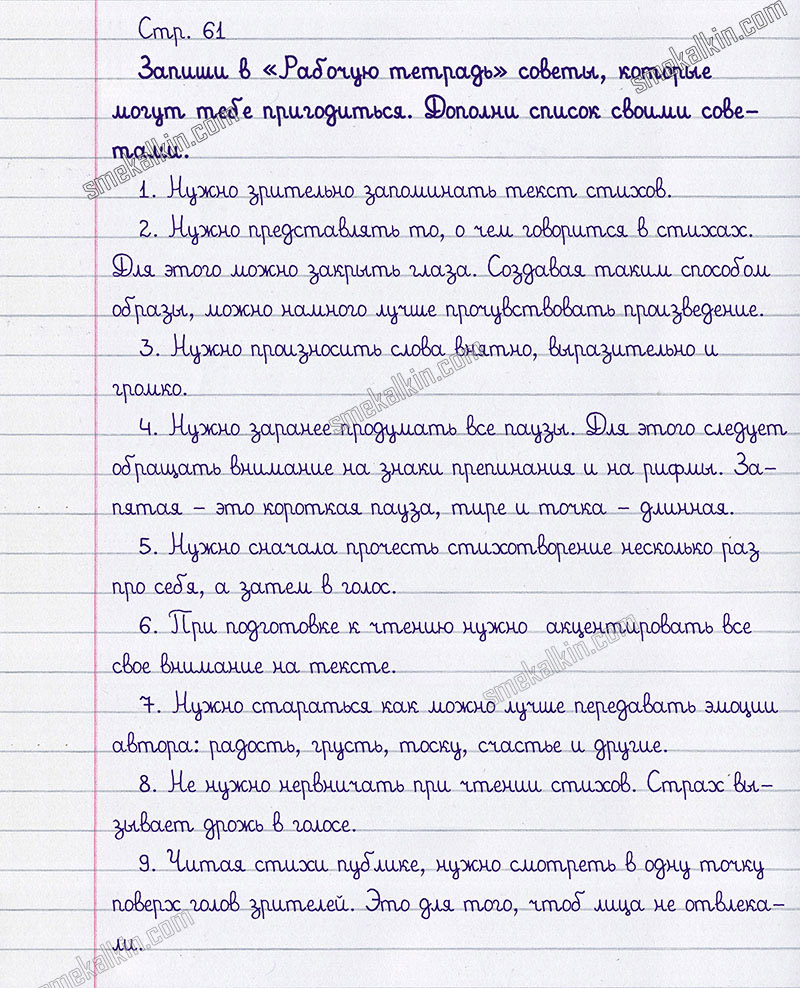 Стр. 61
Запиши в «Рабочую тетрадь» советы, которые
могут тебе пригодиться. Дополни список своими сове-
тами.
1. Нужно зрительно запоминать текст стихов.
2. Нужно представлять то, о чем говорится в стихах.
Для этого можно закрыть глаза. Создавая таким способом
образы, можно намного лучше прочувствовать произведение.
3. Нужно произносить слова внятно, выразительно и
громко.
4. Нужно заранее продумать все паузы. Для этого следует
обращать внимание на знаки препинания и на рифмы. За-
пятая – это короткая пауза, тире и точка – длинная.
5. Нужно сначала прочесть стихотворение несколько раз
про себя, а затем в голос.
6. При подготовке к чтению нужно акцентировать все
свое внимание на тексте.
7. Нужно стараться как можно лучше передавать эмоции
автора: радость, грусть, тоску, счастье и другие.
8. Не нужно нервничать при чтении стихов. Страх вы-
зывает дрожь в голосе.
9. Читая стихи публике, нужно смотреть в одну точку
поверх голов зрителей. Это для того, чтоб лица не отвлека-
ли.
smekalkin.com
smekalkin.com
smekalkin.com
smekalkin.com
smekalkin.com